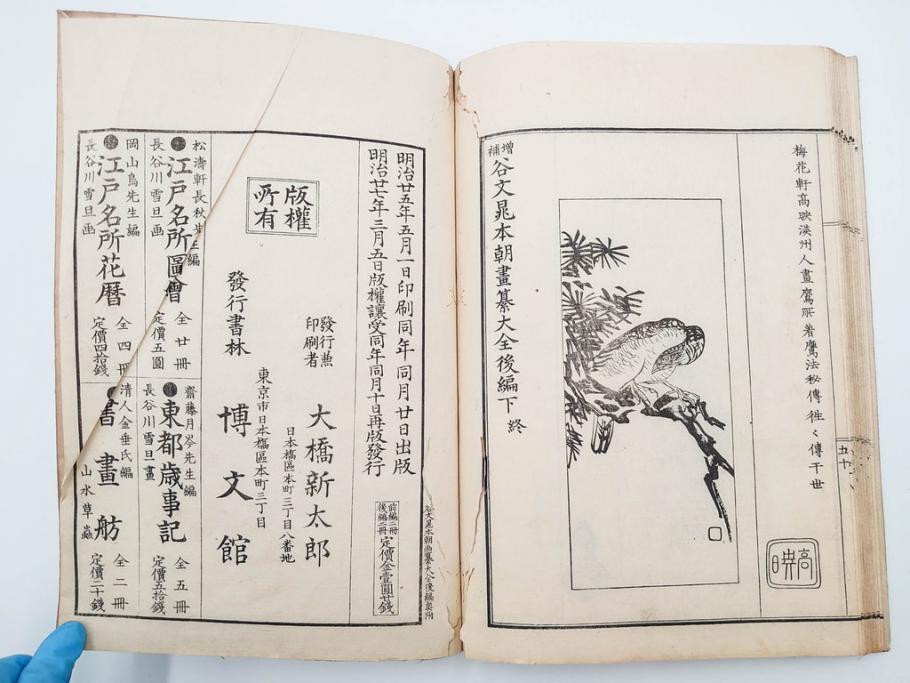 梅花軒高暎淡州人畫鷹所着鷹法秘傳徃々傳于世
高暎
五十
増補谷文晁本朝畫纂大全後編下 終
谷文晁本朝畫纂大全後編奥附
明治廿五年五月一日印刷同年同月廿日出版
明治廿七年三月五日版權讓受同年同月十日再版發行
前編二冊
後編二冊
定價金壹圓廿錢
版權
所有
發行兼
印刷者
大橋新太郎
日本橋區本町三丁目八番地
東京市日本橋區本町三丁目
發行書林
博文館
松濤軒長秋先生編
江戸名所圖會
長谷川雪旦画
全廿冊
定價五圓
岡山鳥先生編
江戸名所花暦
長谷川雪旦画
全四冊
定價四拾錢
齋藤月岑先生編
東都歳事記
長谷川雪旦畫
全五冊
定價五拾錢
清人金垂氏編
書畫舫
山水草蟲
全二冊
定價二十錢